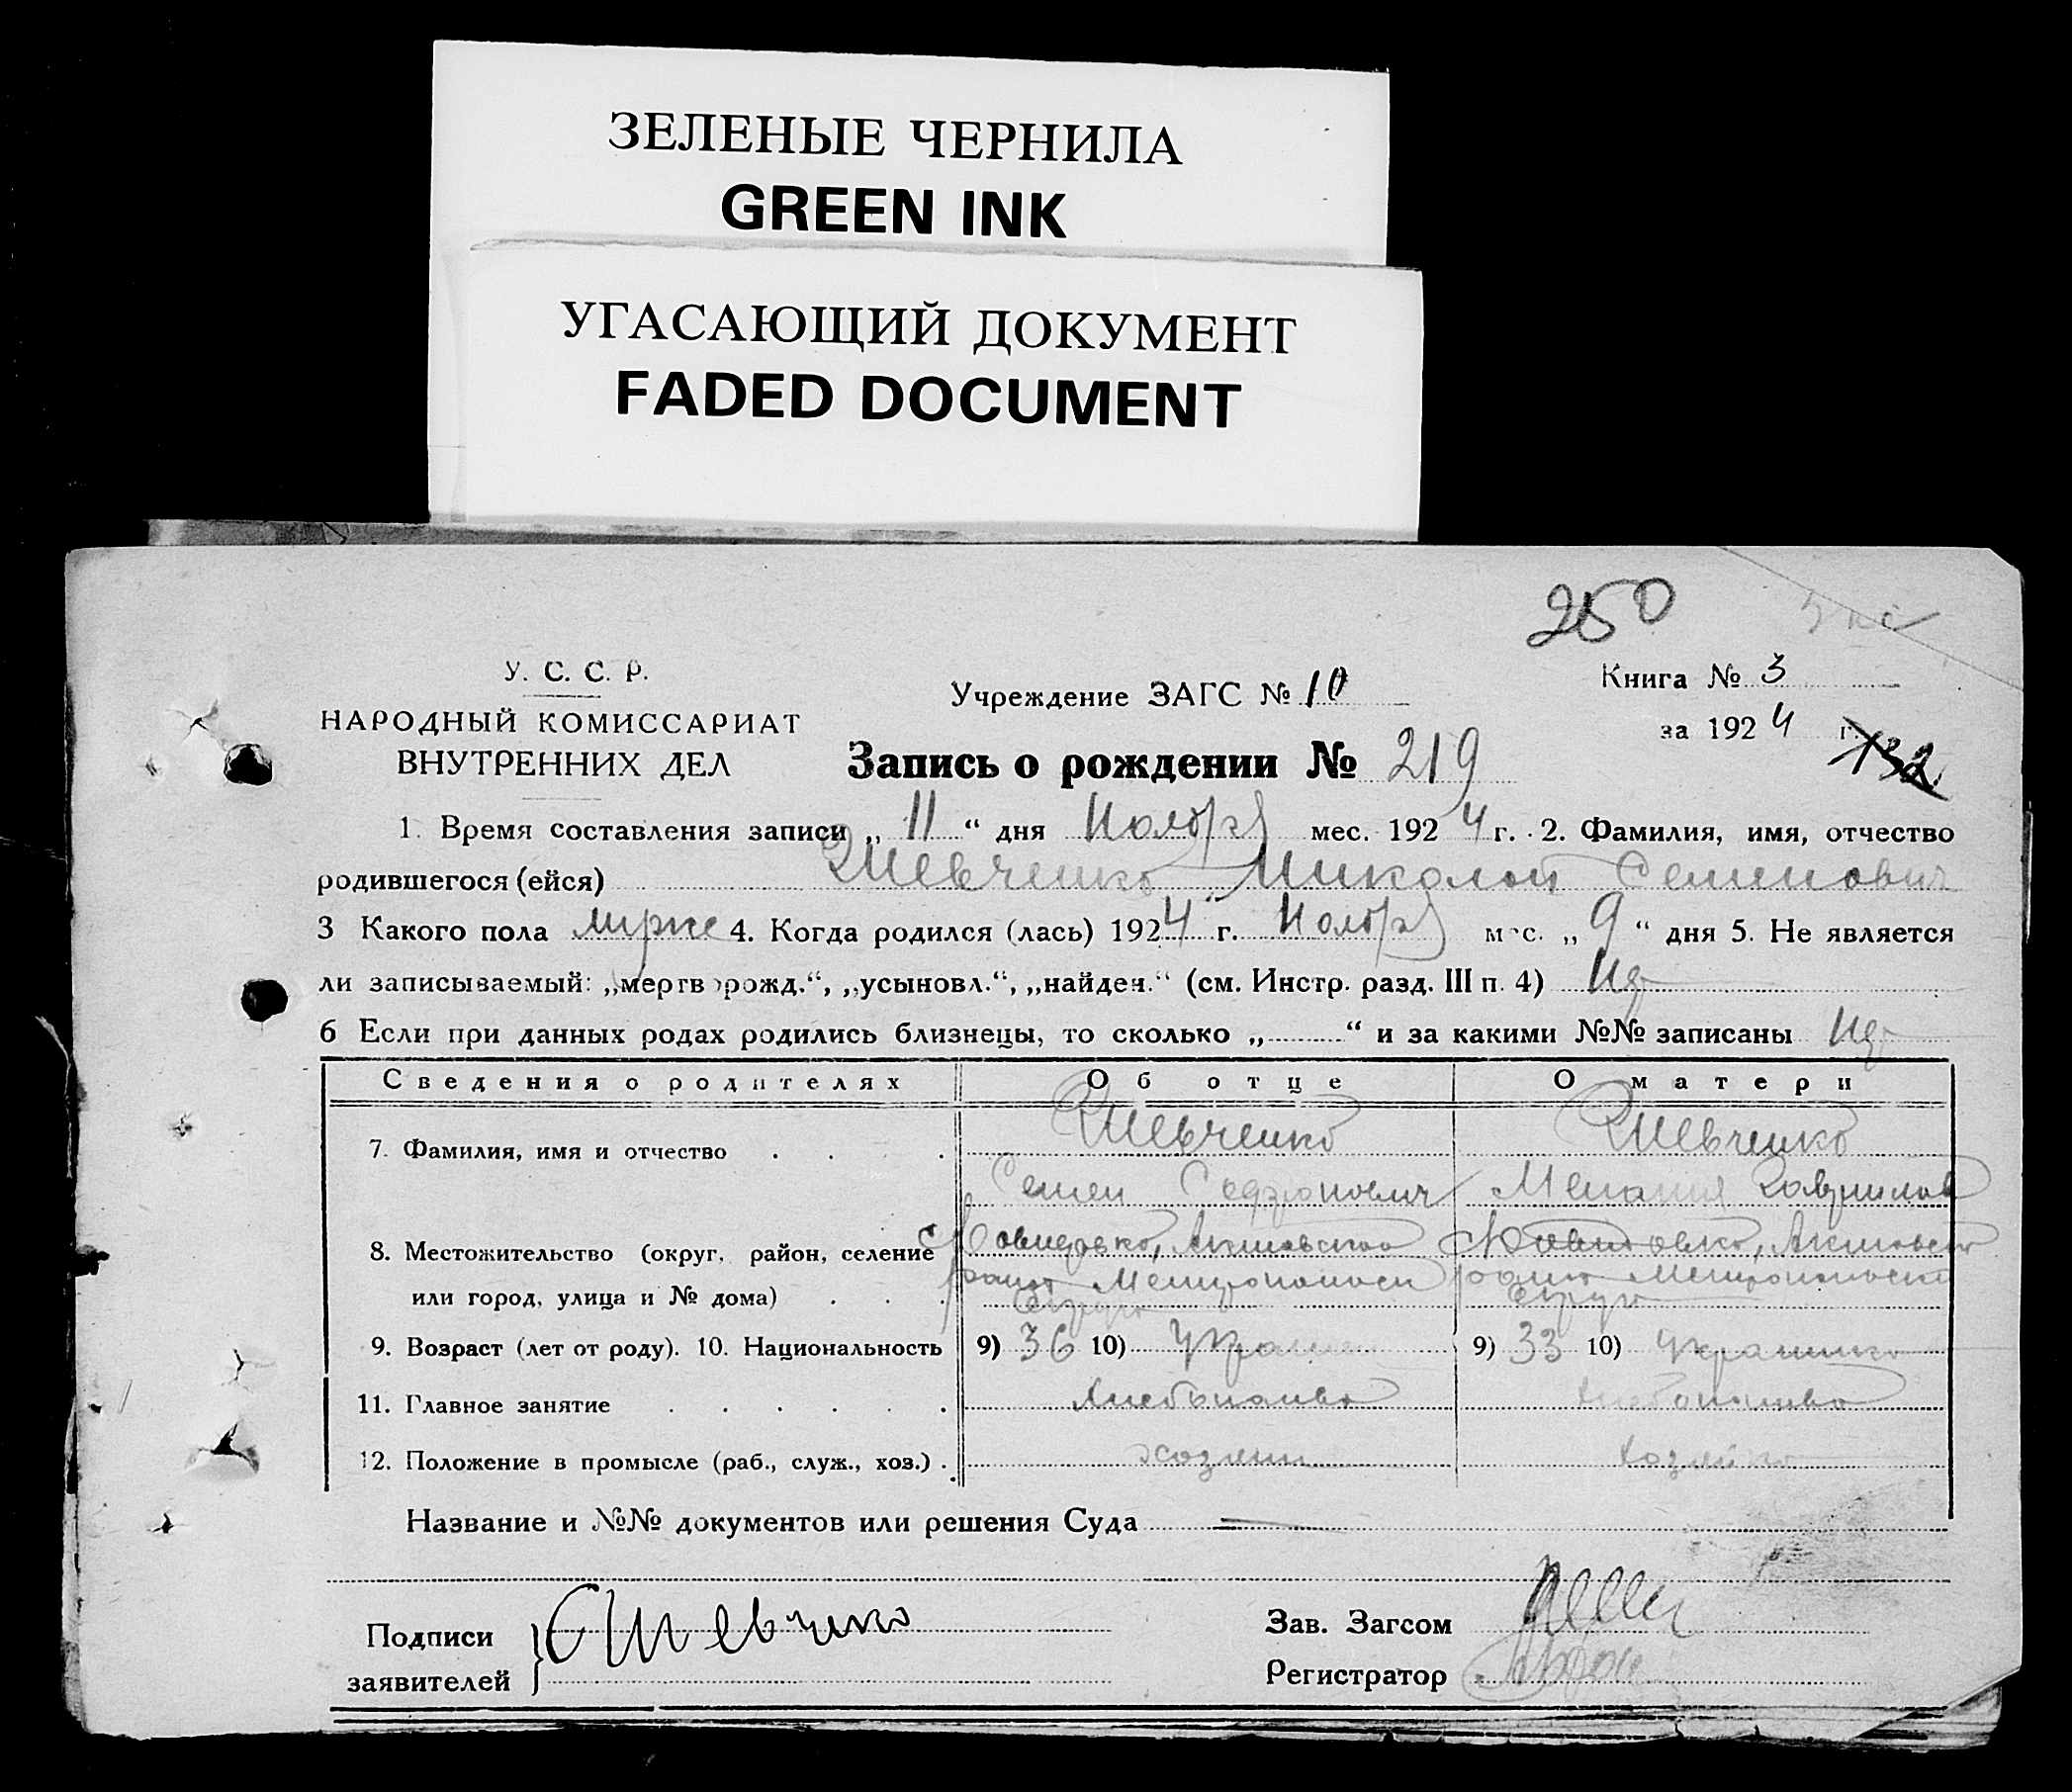 ЗЕЛЕНЫЕ ЧЕРНИЛА
GREEN INK
УГАСАЮЩИЙ ДОКУМЕНТ
FADED DOCUMENT
250
У. С. С. Р.
НАРОДНЫЙ КОМИССАРИАТ
ВНУТРЕННИХ ДЕЛ
Учреждение ЗАГС № 10
Книга № 3
за 1924 г.
132
Запись о рождении № 219
1. Время составления записи „ 11 “ дня Ноября мес. 1924 г. 2. Фамилия, имя, отчество
родившегося (ейся) Шевченко Николай Семенович
3 Какого пола мужс 4. Когда родился (лась) 1924 г. Ноября мес. „ 9 “ дня 5. Не является
ли записываемый: „мертворожд.“, „усыновл.“, „найден.“ (см. Инстр. разд. III п. 4)
6 Если при данных родах родились близнецы, то сколько „ “ и за какими №№ записаны
Сведения о родителях Об отце О матери
7. Фамилия, имя и отчество Шевченко Шевченко
Семен Софронович Мелания Гаврилов
8. Местожительство (округ, район, селение
или город, улица и № дома)
9. Возраст (лет от роду). 10. Национальность 9) 36 10) 9) 33 10) Украинка
11. Главное занятие
12. Положение в промысле (раб., служ., хоз.) хозяин хозяйка
Название и №№ документов или решения Суда
Подписи
заявителей
СШевченко
Зав. Загсом
Регистратор